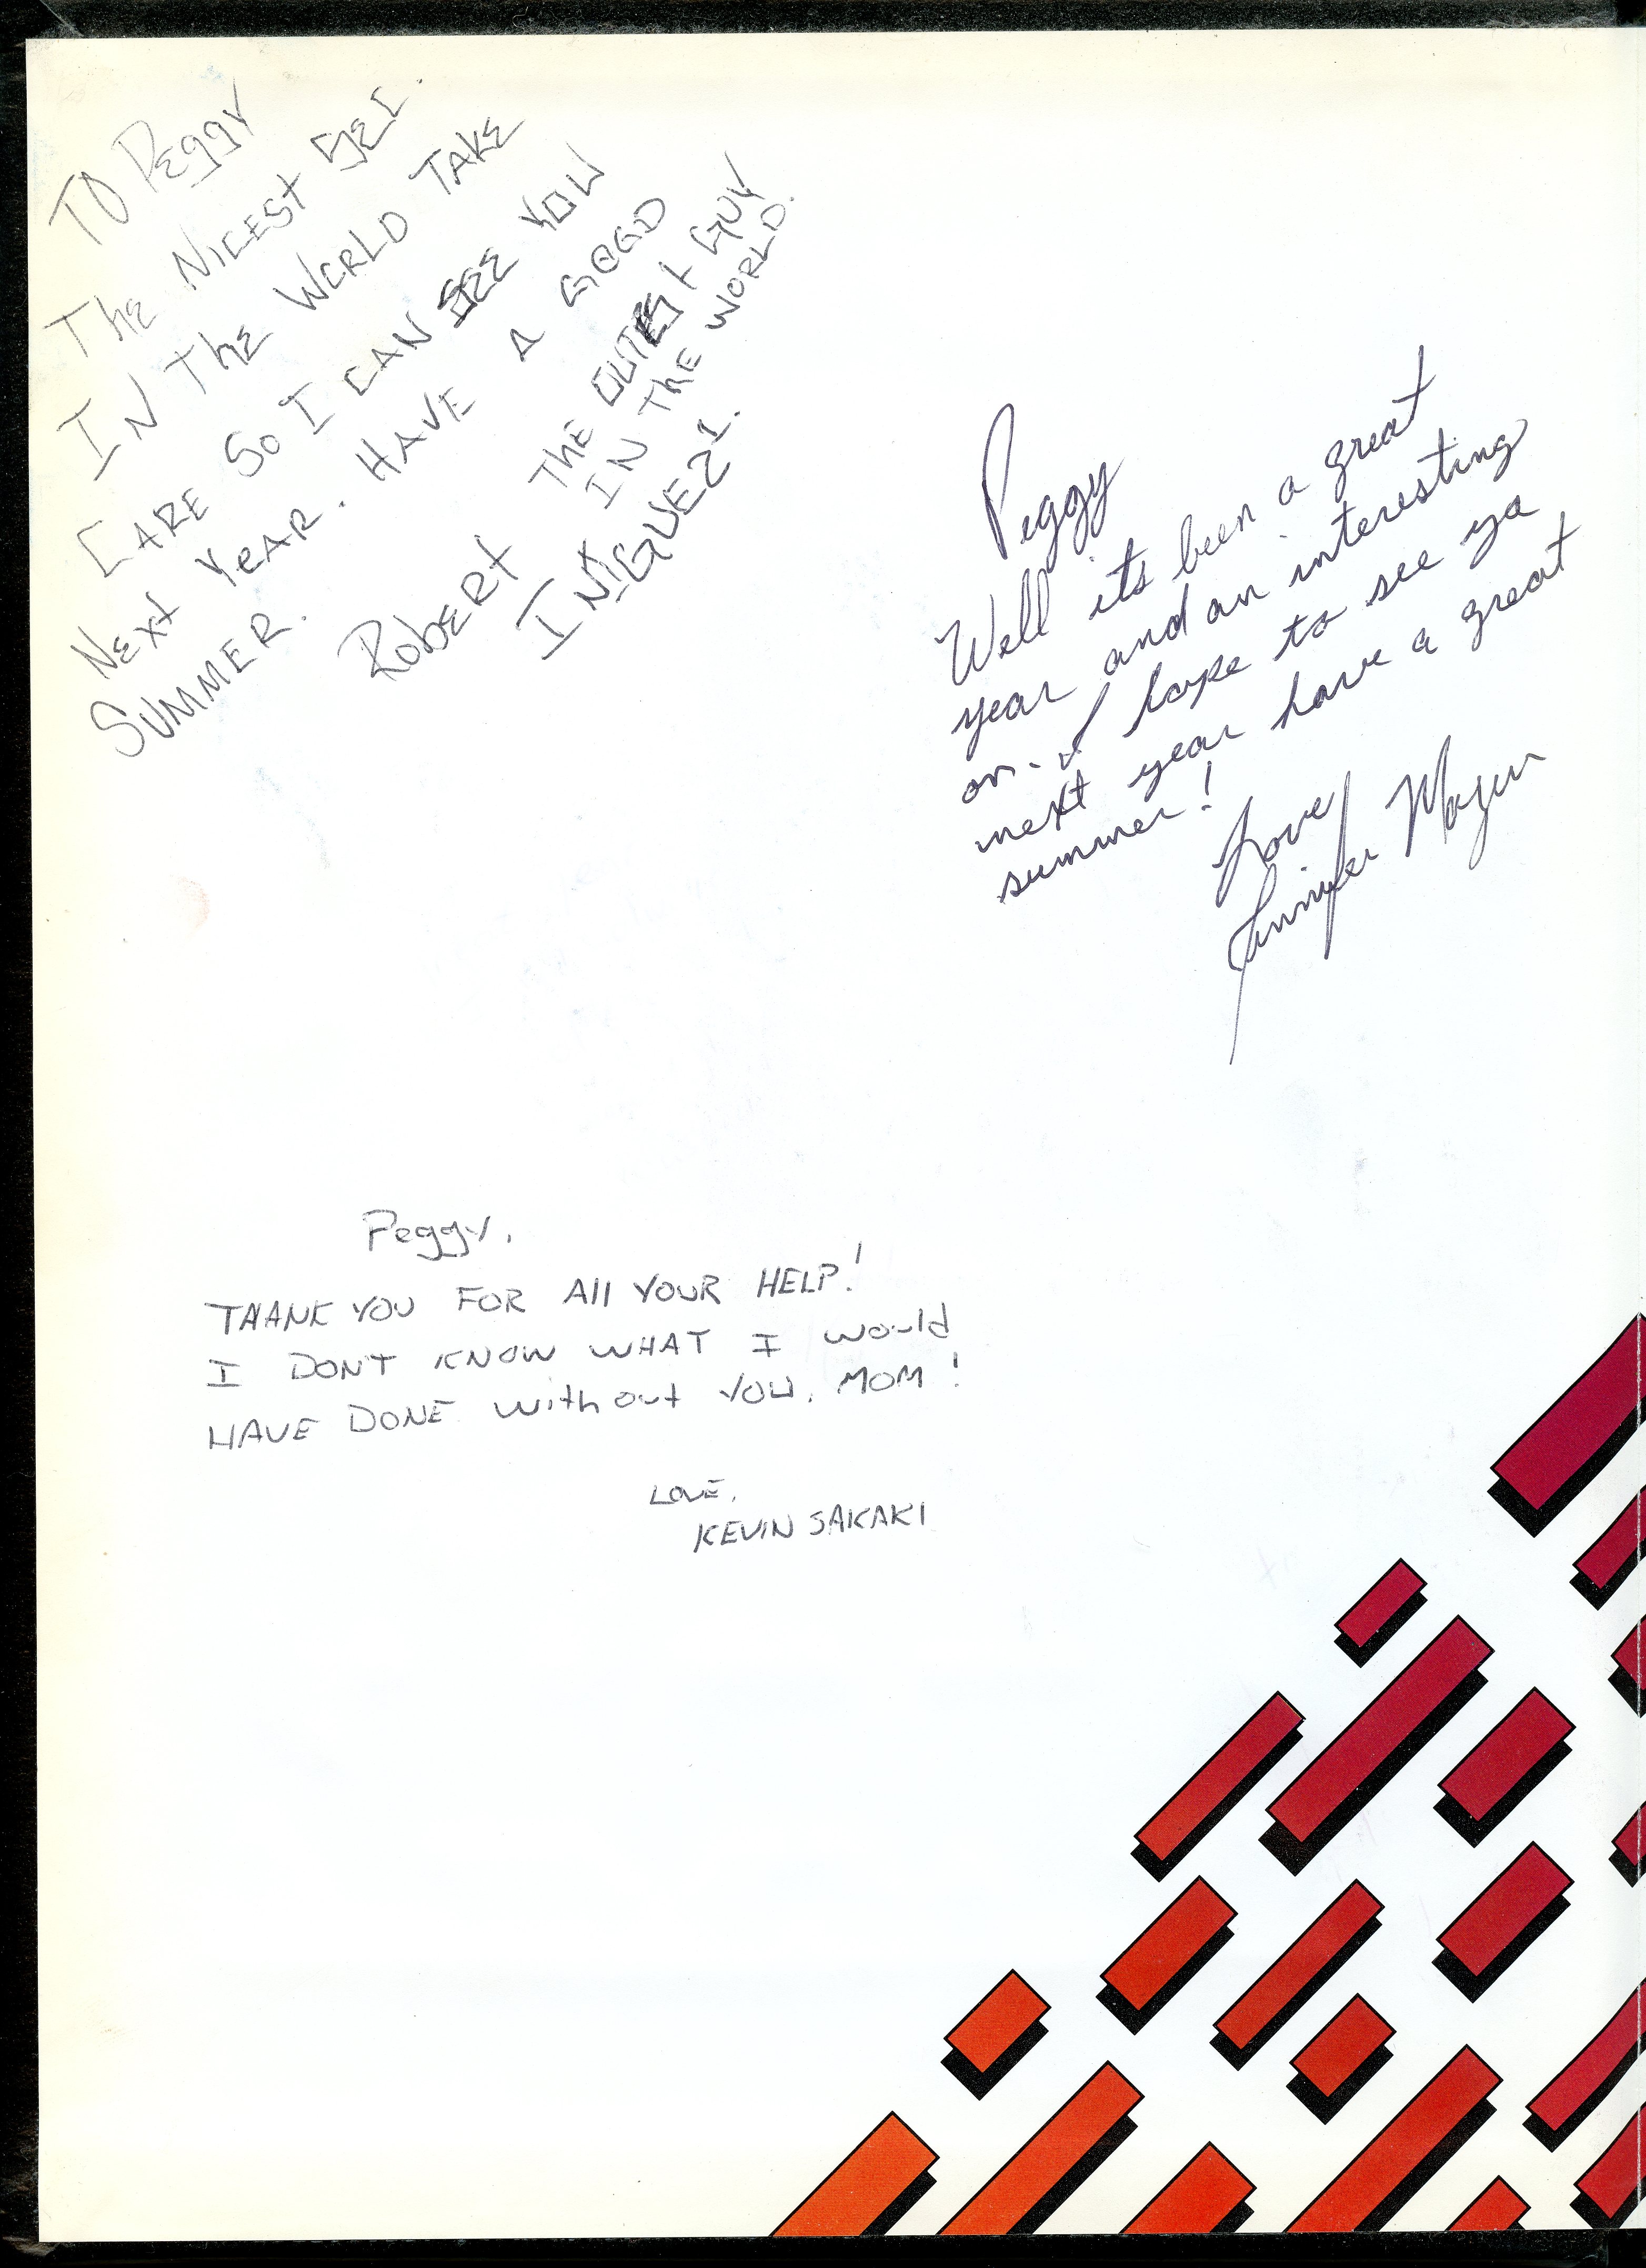 TO PEggY
ThE NICEST
IN ThE WORLD TAKE
CARE SO I CAN SEE YOU
NExt YeAR. HAVE A GOOD
SUMMER.
RobERt THE CUTESt GUY
IN ThE WORLD.
INIGUEZ 1.
Peggy
Well its been a great
year and an interesting
on. I hope to see ya
next year have a great
summer!
Love
Jennifer
Peggy,
THANK YOU FOR All YOUR HELP!
I DON'T KNOW WHAT I would
HAVE DONE without YOU, MOM!
LOVE,
KEVIN SAKAKI